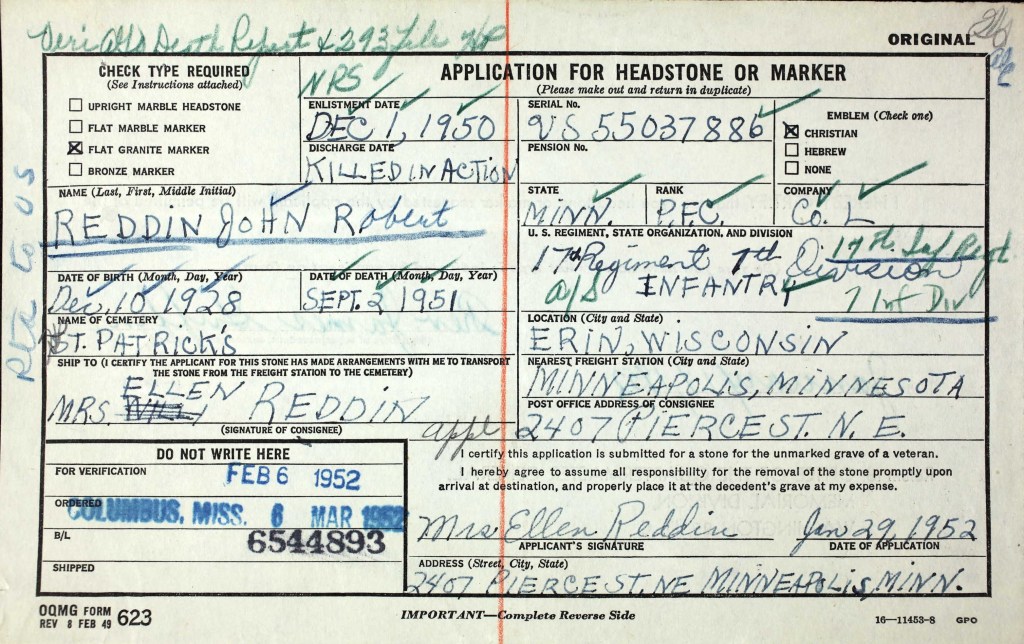 Veri Allo Death Report & 293 File
ORIGINAL
CHECK TYPE REQUIRED
(See Instructions attached)
UPRIGHT MARBLE HEADSTONE
FLAT MARBLE MARKER
FLAT GRANITE MARKER
BRONZE MARKER
NPS
APPLICATION FOR HEADSTONE OR MARKER
(Please make out and return in duplicate)
ENLISTMENT DATE
DEC 1, 1950
SERIAL No.
US 55037886
EMBLEM (Check one)
CHRISTIAN
HEBREW
NONE
DISCHARGE DATE
KILLED IN ACTION
PENSION No.
NAME (Last, First, Middle Initial)
REDDIN JOHN Robert
STATE
MINN.
RANK
PFC.
COMPANY
Co. L
U.S. REGIMENT, STATE ORGANIZATION, AND DIVISION
17th Regiment 7th Division
INFANTRY
A/S
17th Inf Regt
7 Inf Div
DATE OF BIRTH (Month, Day, Year)
Dec, 10, 1928
DATE OF DEATH (Month, Day, Year)
SEPT. 2, 1951
NAME OF CEMETERY
ST. PATRICKS
LOCATION (City and State)
ERIN, WISCONSIN
SHIP TO (I CERTIFY THE APPLICANT FOR THIS STONE HAS MADE ARRANGEMENTS WITH ME TO TRANSPORT
THE STONE FROM THE FREIGHT STATION TO THE CEMETERY)
ELLEN
MRS. REDDIN
(SIGNATURE OF CONSIGNEE)
appl
NEAREST FREIGHT STATION (City and State)
MINNEAPOLIS, MINNESOTA
POST OFFICE ADDRESS OF CONSIGNEE
2407 PIERCE ST. N. E.
DO NOT WRITE HERE
FOR VERIFICATION
FEB 6 1952
ORDERED
COLUMBUS, MISS. 6 MAR 1952
B/L
6544893
SHIPPED
I certify this application is submitted for a stone for the unmarked grave of a veteran.
I hereby agree to assume all responsibility for the removal of the stone promptly upon
arrival at destination, and properly place it at the decedent's grave at my expense.
Mrs Ellen Reddin Jan 29, 1952
APPLICANT'S SIGNATURE DATE OF APPLICATION
ADDRESS (Street, City, State)
2407 PIERCE ST. NE MINNEAPOLIS, MINN.
OQMG FORM
REV 8 FEB 49 623
IMPORTANT—Complete Reverse Side
16—11453-8 GPO